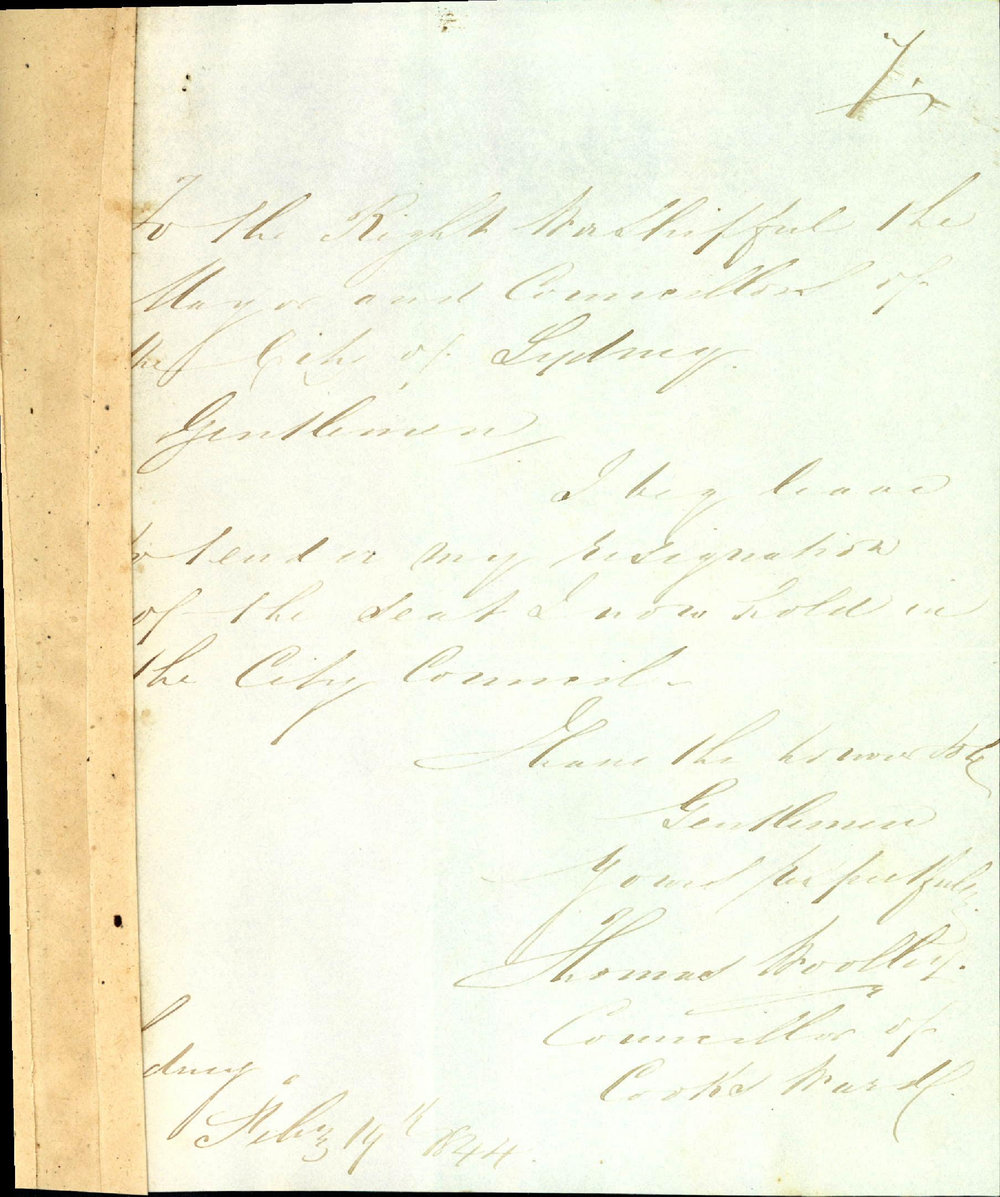 7
To the Right Worshipful the
Mayor and Councillors of
the City of Sydney
Gentlemen,
I beg leave
to tender my resignation
of the seat I now hold in
the City Council-
I have the honor to be
Gentlemen
Yours respectfully
Thomas Woolley.
Councillor of
Cooks Ward
dney
Feby 14th 1844